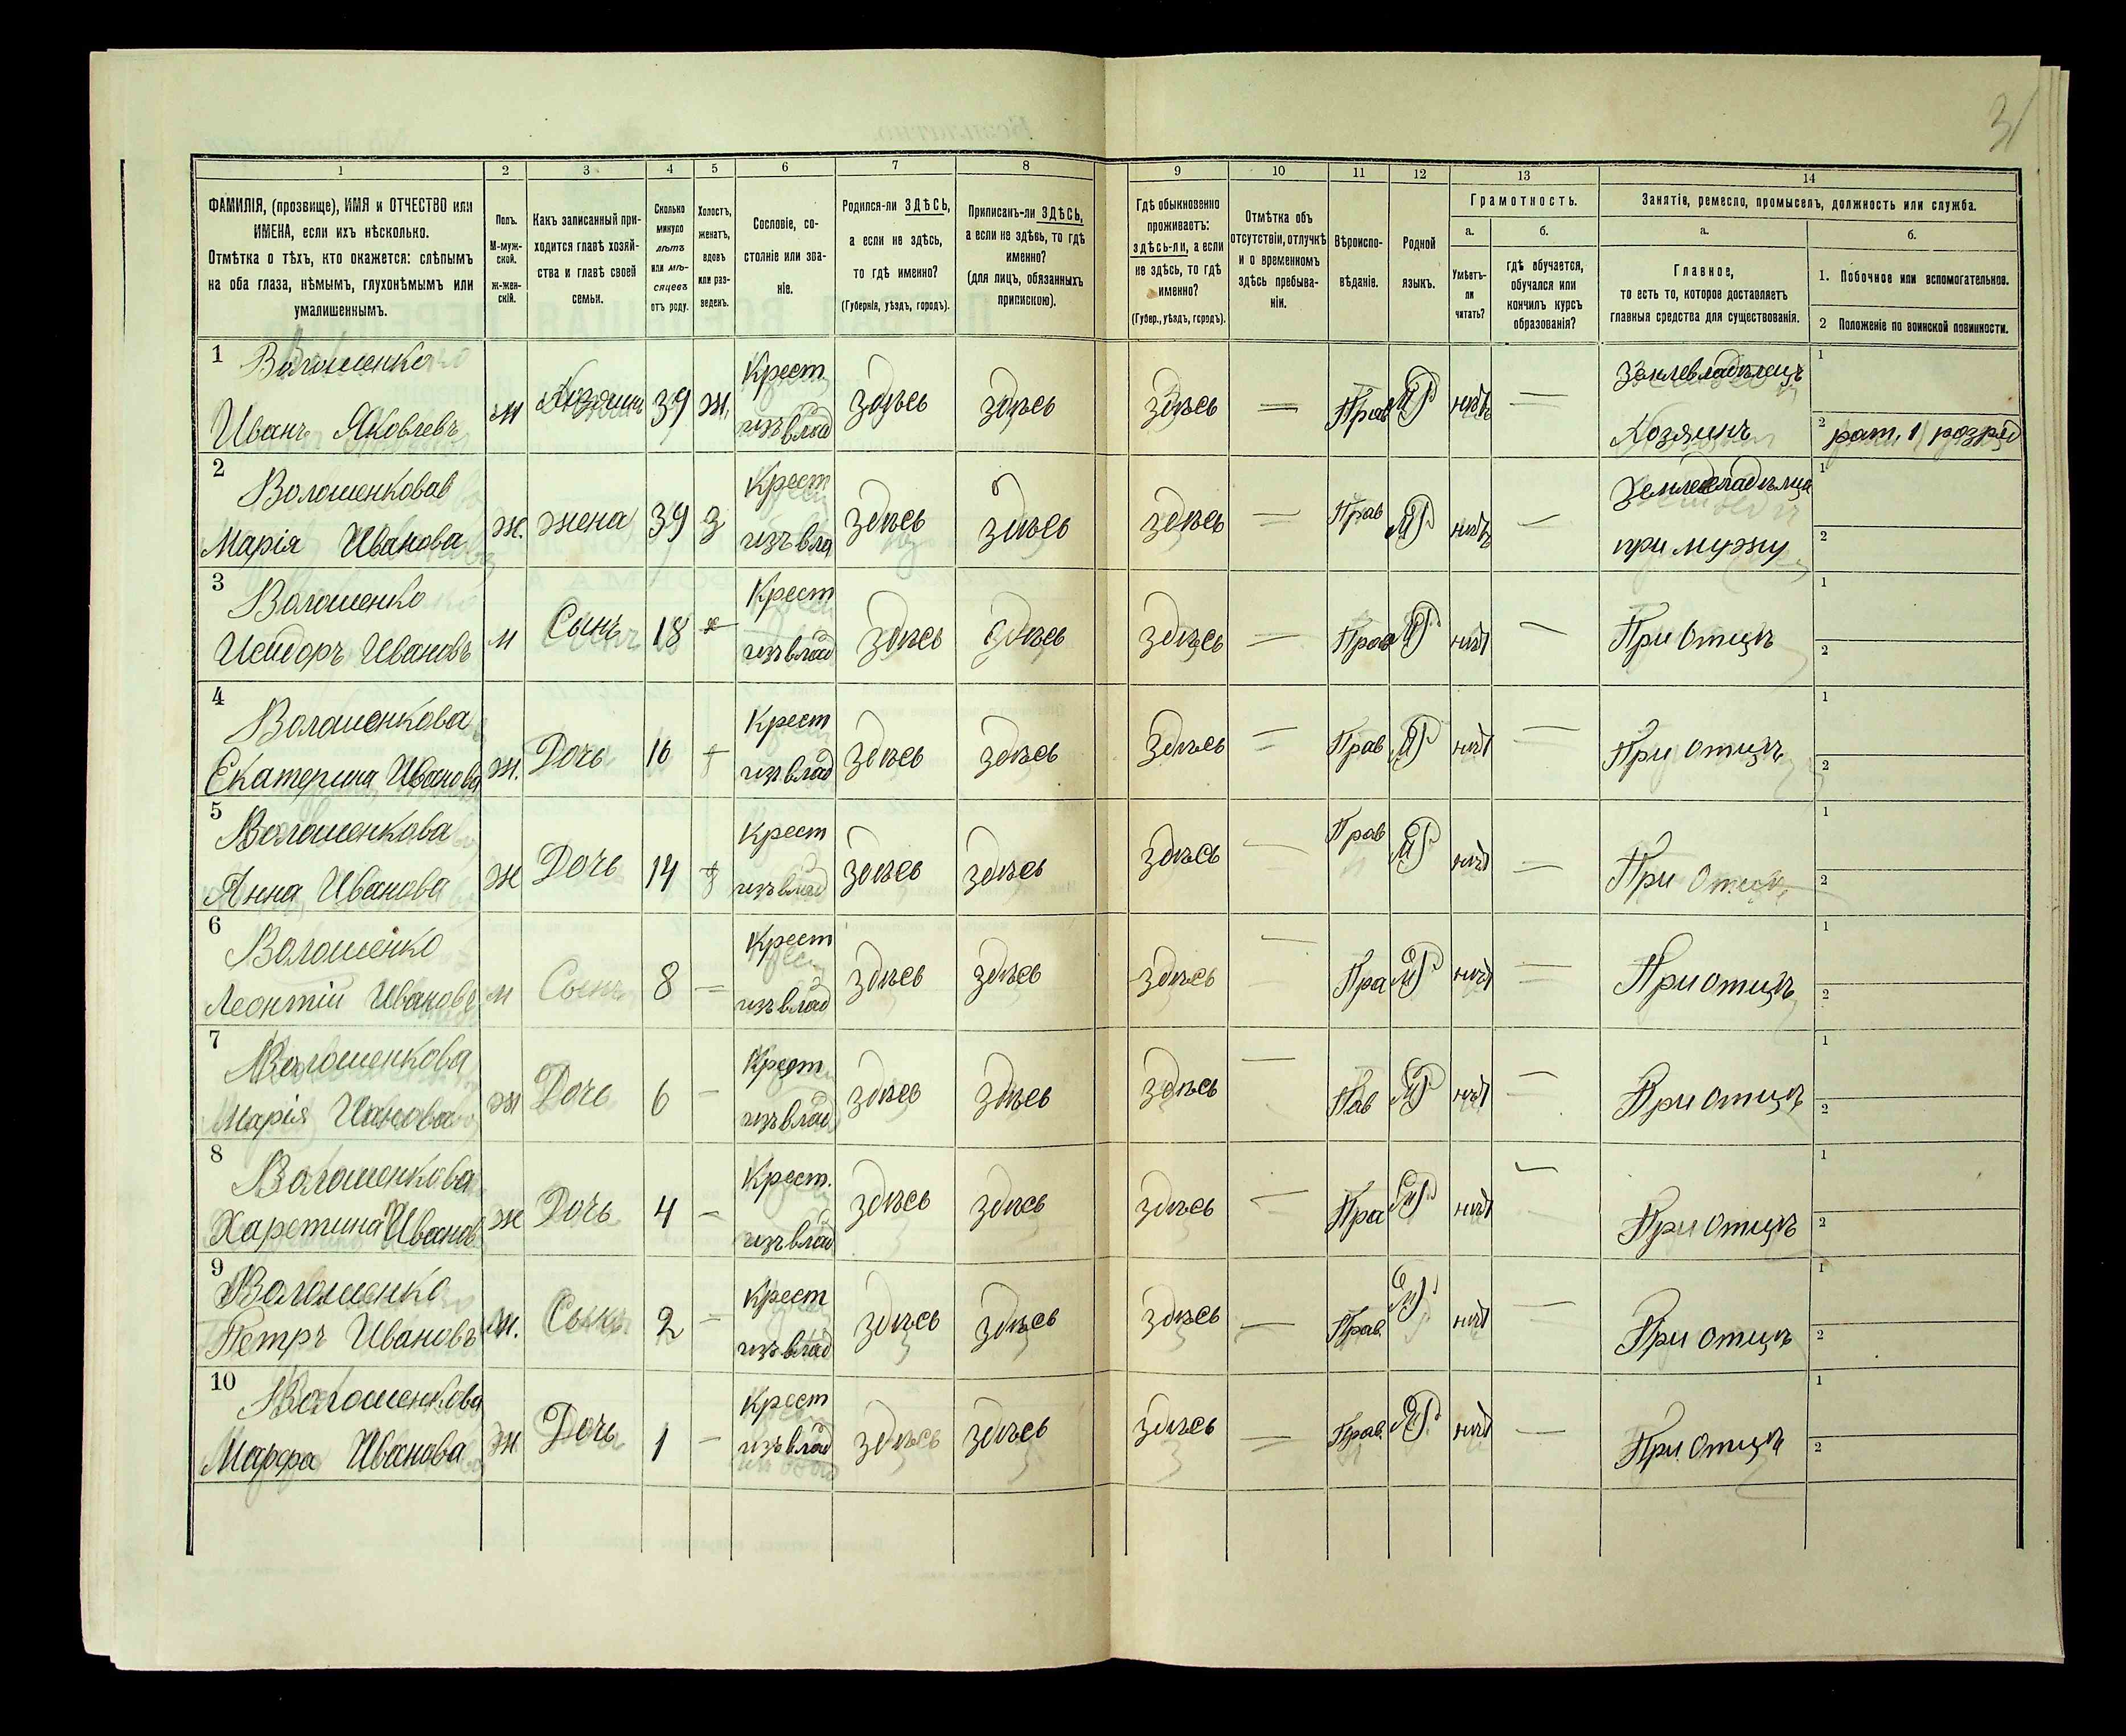 31
1 2 3 4 5 6 7 8 9 10 11 12 13 14
ФАМИЛІЯ, (прозвище), ИМЯ и ОТЧЕСТВО или
ИМЕНА, если ихъ нѣсколько.
Отмѣтка о тѣхъ, кто окажется: слѣпымъ
на оба глаза, нѣмымъ, глухонѣмымъ или
умалишеннымъ.
Полъ.
М-муж-
ской.
ж-жен-
скій.
Какъ записанный при-
ходится главѣ хозяй-
ства и главѣ своей
семьи.
Сколько
минуло
лѣтъ
или мѣ-
сяцевъ
отъ роду.
Холостъ,
женатъ,
вдовъ
или раз-
веденъ.
Сословіе, со-
стояніе или зва-
ніе.
Родился-ли ЗДѢСЬ,
а если не здѣсь,
то гдѣ именно?
(Губернія, уѣздъ, городъ).
Приписанъ-ли ЗДѢСЬ,
а если не здѣсь, то гдѣ
именно?
(для лицъ, обязанныхъ
припискою).
Гдѣ обыкновенно
проживаетъ:
здѣсь-ли, а если
не здѣсь, то гдѣ
именно?
(Губер., уѣздъ, городъ).
Отмѣтка объ
отсутствіи, отлучкѣ
и о временномъ
здѣсь пребыва-
ніи.
Вѣроиспо-
вѣданіе.
Родной
языкъ.
Грамотность.
а.
Умѣетъ-
ли
читать?
б.
гдѣ обучается,
обучался или
кончилъ курсъ
образованія?
Занятіе, ремесло, промыселъ, должность или служба.
а.
Главное,
то есть то, которое доставляетъ
главныя средства для существованія.
б.
1. Побочное или вспомогательное.
2 Положеніе по воинской повинности.
1 Волошенко Крест Землевладѣлецъ 1
Иванъ Яковлевъ м Хозяинъ 39 ж. изъ влад здѣсь здѣсь здѣсь — Прав нѣтъ — Хозяинъ 2 рат. 1 розряд
2 Волошенкова Крест 1
Марія Иванова ж. жена 39 З изъ вла здѣсь здѣсь здѣсь — Прав нѣтъ — при мужу 2
3 Волошенко Крест 1
Исидоръ Ивановъ м Сынъ 18 изъ влад здѣсь здѣсь здѣсь — Прав нѣт — При отцѣ 2
4 Волошенкова Крест 1
Екатерина Иванова ж. Дочь изъ влад здѣсь здѣсь здѣсь — Прав нѣт — При отцѣ 2
5 Волошенкова Крест 1
Анна Иванова ж Дочь 14 изъ влад здѣсь здѣсь здѣсь — Прав нѣт — При отцѣ 2
6 Волошенко Крест 1
Леонтій Ивановъ м Сынъ 8 — изъ влад здѣсь здѣсь здѣсь — Пра нѣт — При отцѣ 2
7 Волошенкова Крест 1
Марія Иванова ж Дочь 6 — изъ влад здѣсь здѣсь здѣсь — Пав нѣт — При отцѣ 2
8 Волошенкова Крест. 1
Харетина Иванов ж Дочь 4 — изъ влад здѣсь здѣсь здѣсь — Пра нѣт — При отцѣ 2
9 Волошенко Крест 1
Петръ Ивановъ м. Сынъ 2 — изъ влад здѣсь здѣсь здѣсь — Прав. нѣт — При отцѣ 2
10 Волошенкова Крест 1
Марфа Иванова ж. Дочь 1 — изъ влад здѣсь здѣсь здѣсь — Прав. нѣт — При отцѣ 2